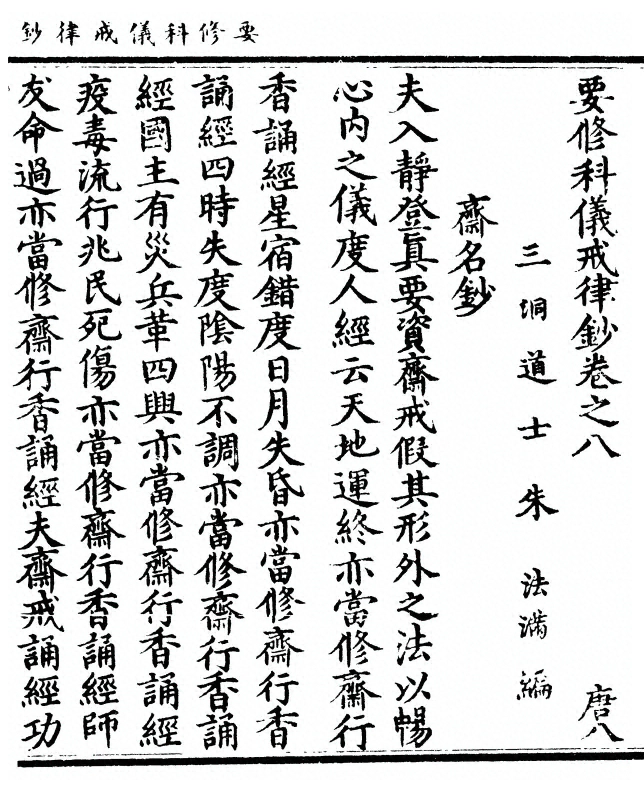 要修科儀戒律鈔
要修科儀戒律鈔卷之八 唐八
三洞道士朱法滿編
齋名鈔
夫入靜登眞要資齋戒假其形外之法以暢
心內之儀度人經云天地運終亦當修齋行
香誦經星宿錯度日月失昏亦當修齋行香
誦經四時失度陰陽不調亦當修齋行香誦
經國主有災兵革四興亦當修齋行香誦經
疫毒流行兆民死傷亦當修齋行香誦經師
友命過亦當修齋行香誦經夫齋戒誦經功